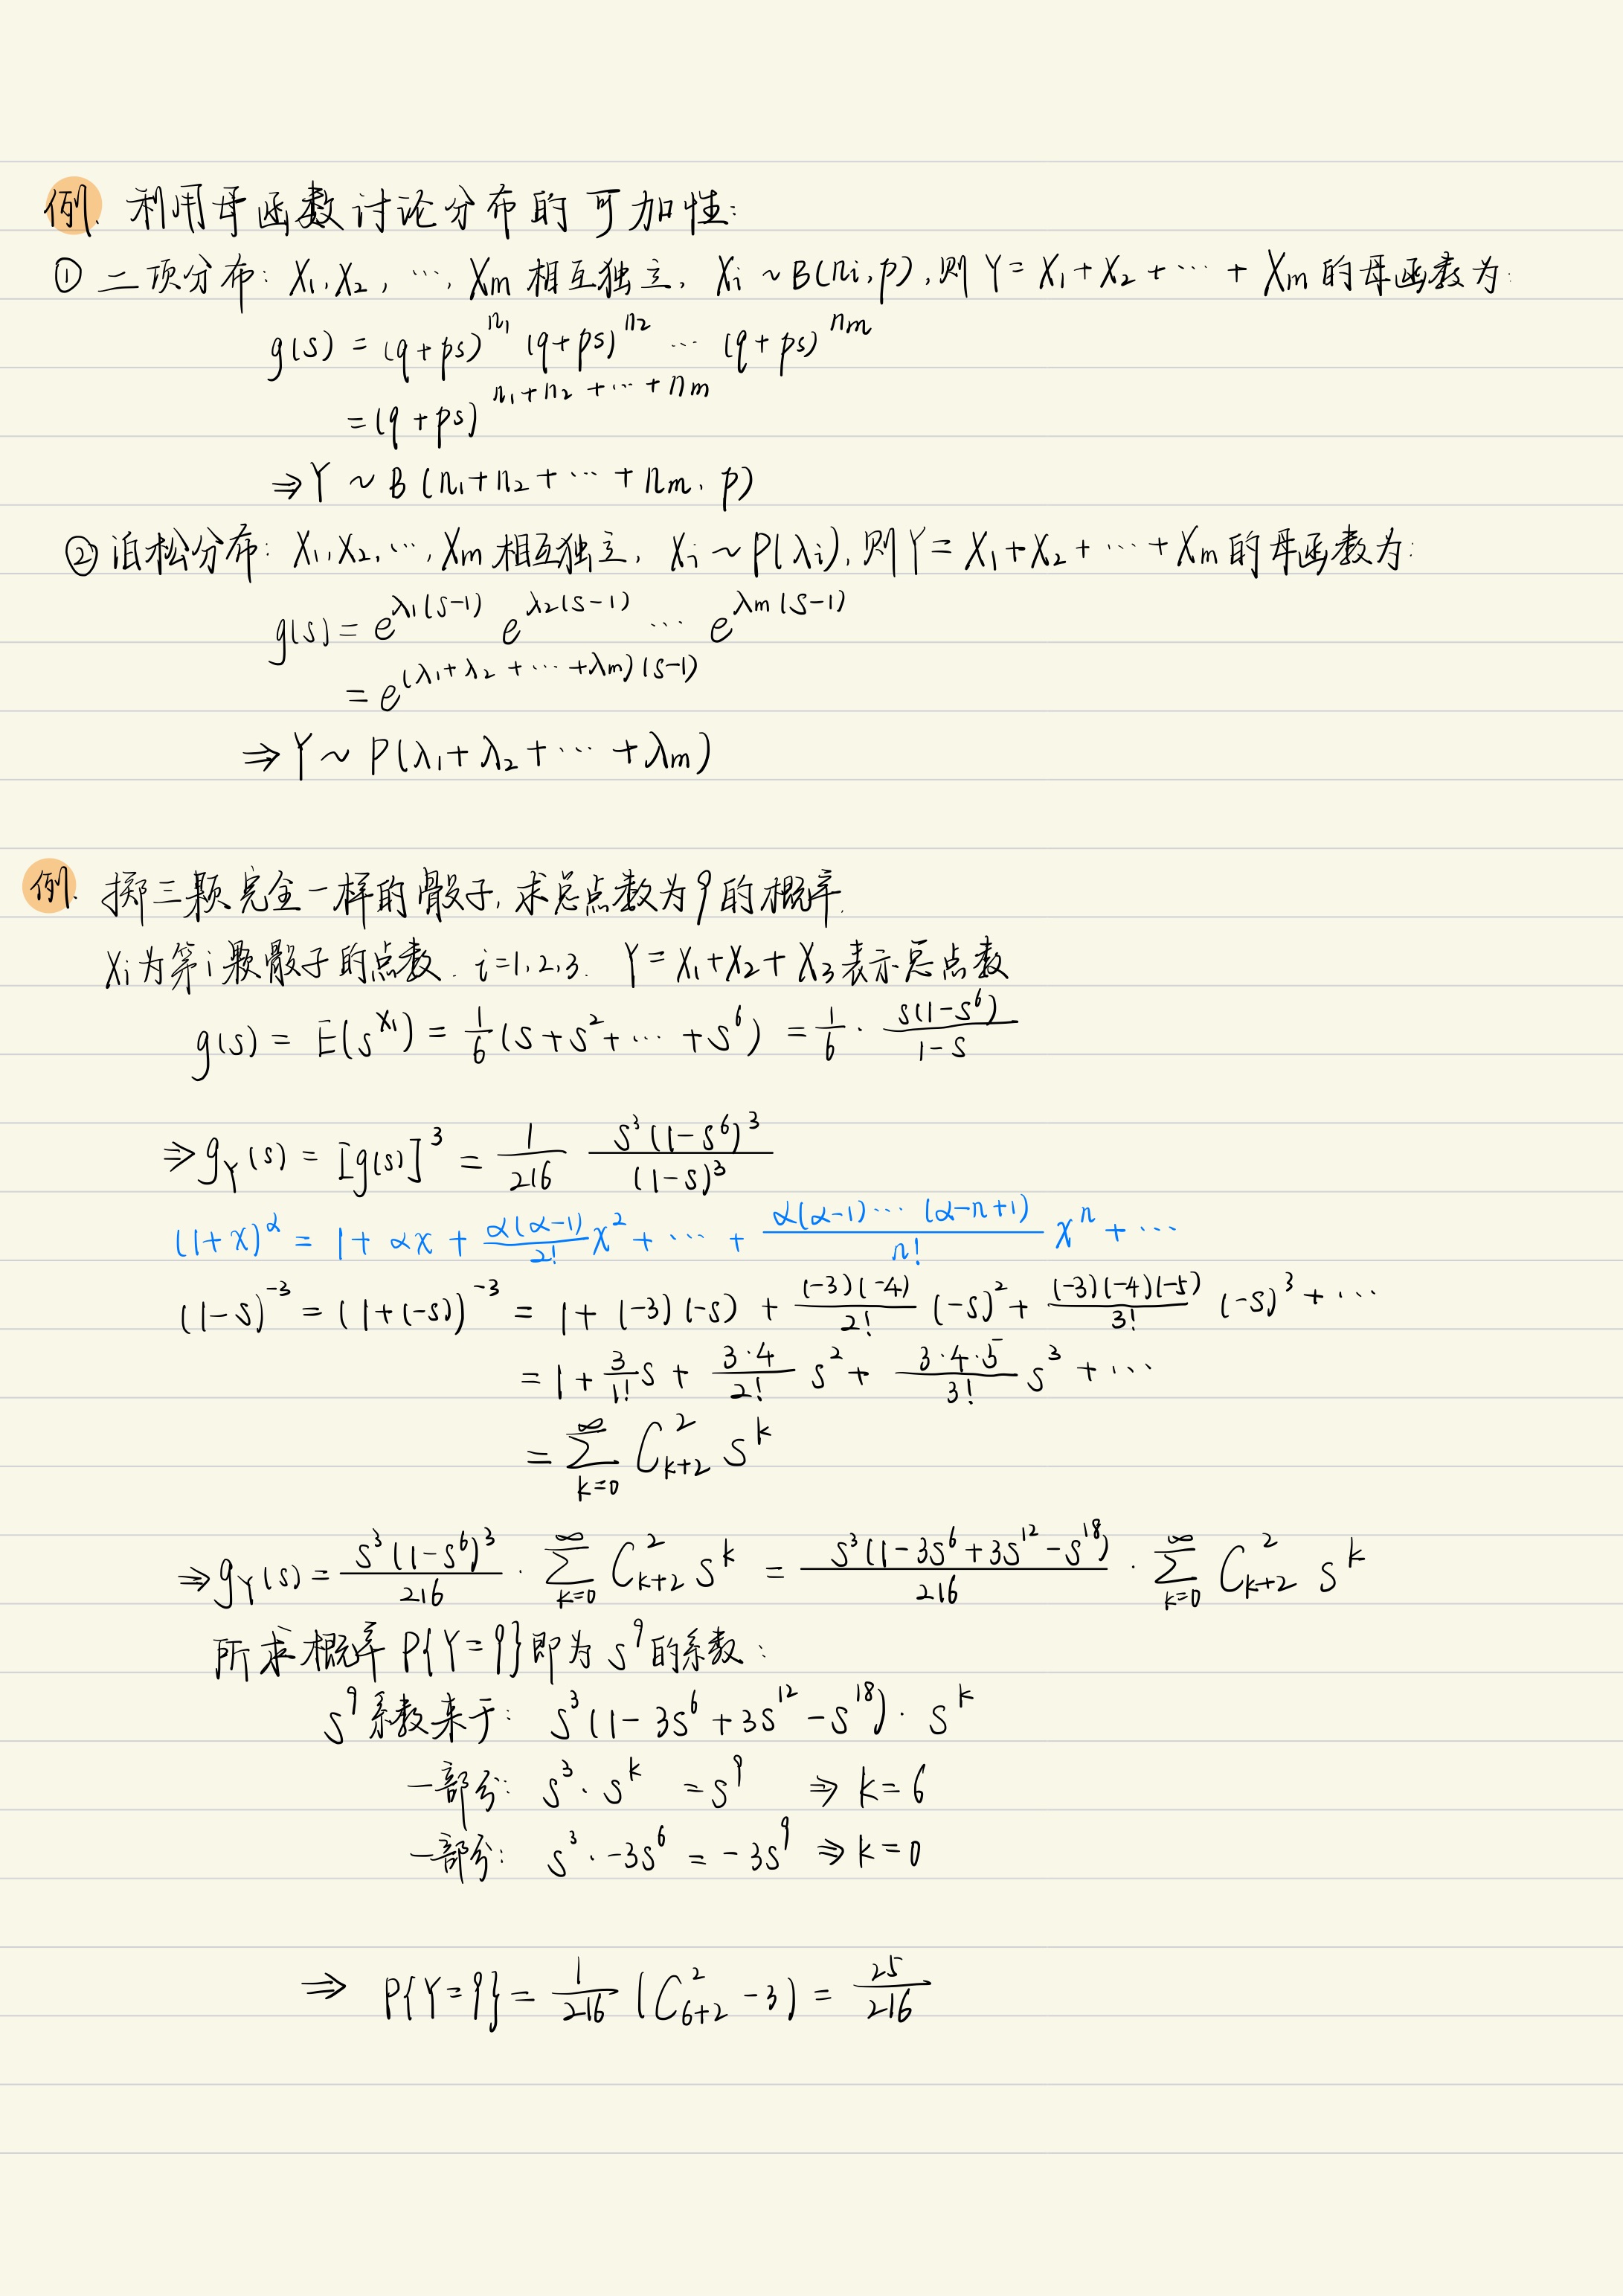 例. 利用母函数讨论分布的可加性:
① 二项分布: X₁, X₂, ⋯, Xm 相互独立, Xi ~ B(ni, p), 则 Y = X₁ + X₂ + ⋯ + Xm 的母函数为:
g(s) = (q+ps)^{n₁} (q+ps)^{n₂} ⋯ (q+ps)^{nm}
= (q+ps)^{n₁+n₂+⋯+nm}
⇒ Y ~ B(n₁+n₂+⋯+nm, p)
② 泊松分布: X₁, X₂, ⋯, Xm 相互独立, Xi ~ P(λi), 则 Y = X₁+X₂+⋯+Xm 的母函数为:
g(s) = e^{λ₁(s-1)} e^{λ₂(s-1)} ⋯ e^{λm(s-1)}
= e^{(λ₁+λ₂+⋯+λm)(s-1)}
⇒ Y ~ P(λ₁+λ₂+⋯+λm)
例. 掷三颗完全一样的骰子, 求总点数为9的概率.
Xi为第i颗骰子的点数. i=1,2,3. Y = X₁+X₂+X₃表示总点数
g(s) = E(s^{X₁}) = \frac{1}{6}(s+s²+⋯+s⁶) = \frac{1}{6} · \frac{s(1-s⁶)}{1-s}
⇒ g_Y(s) = [g(s)]³ = \frac{1}{216} \frac{s³(1-s⁶)³}{(1-s)³}
(1+x)^α = 1 + αx + \frac{α(α-1)}{2!}x² + ⋯ + \frac{α(α-1)⋯(α-n+1)}{n!} xⁿ + ⋯
(1-s)^{-3} = (1+(-s))^{-3} = 1 + (-3)(-s) + \frac{(-3)(-4)}{2!}(-s)² + \frac{(-3)(-4)(-5)}{3!}(-s)³ + ⋯
= 1 + \frac{3}{1!}s + \frac{3·4}{2!}s² + \frac{3·4·5}{3!}s³ + ⋯
= \sum_{k=0}^{∞} C_{k+2}^{2} s^k
⇒ g_Y(s) = \frac{s³(1-s⁶)³}{216} · \sum_{k=0}^{∞} C_{k+2}^{2} s^k = \frac{s³(1-3s⁶+3s^{12}-s^{18})}{216} · \sum_{k=0}^{∞} C_{k+2}^{2} s^k
所求概率 P{Y=9}即为 s⁹的系数:
s⁹系数来于: s³(1-3s⁶+3s^{12}-s^{18}) · s^k
一部分: s³·s^k = s⁹ ⇒ k=6
一部分: s³·-3s⁶ = -3s⁹ ⇒ k=0
⇒ P{Y=9} = \frac{1}{216}(C_{6+2}^{2} - 3) = \frac{25}{216}